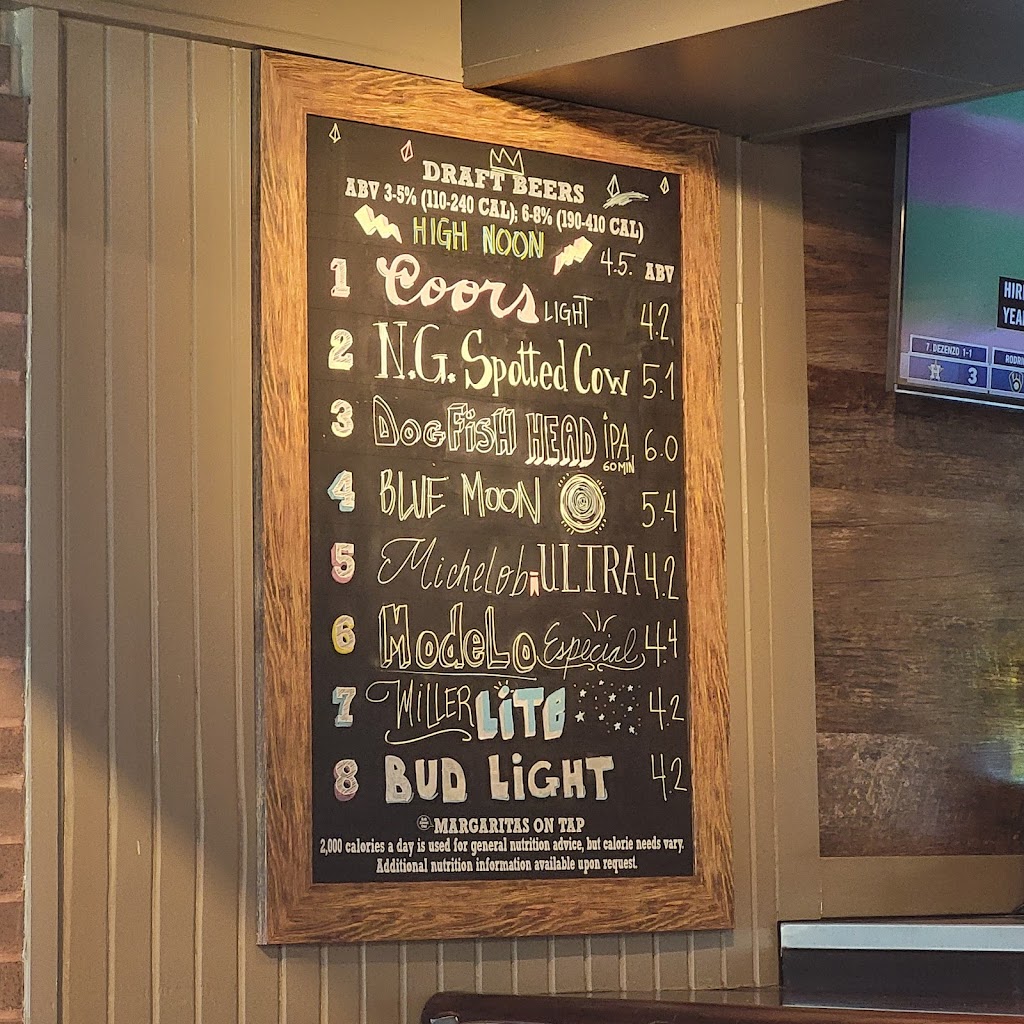 DRAFT BEERS
ABV 3-5% (110-240 CAL); 6-8% (190-410 CAL)
HIGH NOON 4.5. ABV
1 Coors LIGHT 4.2
2 N.G. Spotted Cow 5.1
3 DogFisH HEAD iPA 60 MIN 6.0
4 BLUE MOON 5.4
5 Michelob ULTRA 4.2
6 ModeLo Especial 4.4
7 MiLLER LiTE 4.2
8 BUD LiGHT 4.2
MARGARITAS ON TAP
2,000 calories a day is used for general nutrition advice, but calorie needs vary.
Additional nutrition information available upon request.
HIR
YEA
7. DEZENZO 1-1 RODRI
3